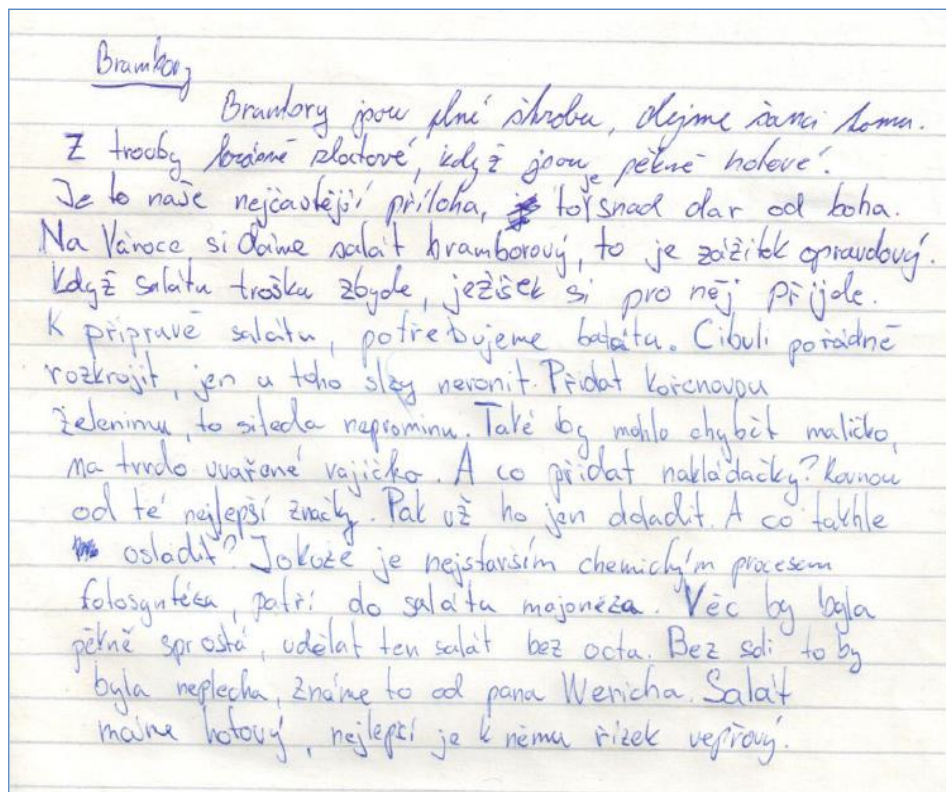 Brambory
Brambory jsou plné škrobu, dejme šanci tomu.
Z trouby krásně zlatové, když jsou pěkně hotové.
Je to naše nejčastější příloha, to je snad dar od boha.
Na Vánoce si dáme salát bramborový, to je zážitek opravdový.
Když salátu troška zbyde, ježíšek si pro něj přijde.
K přípravě salátu, potřebujeme batáta. Cibuli pořádně
rozkrojit, jen u toho slzy neronit. Přidat kořenovou
zeleninu, to si teda neprominu. Také by mohlo chybět maličko,
na tvrdo uvařené vajíčko. A co přidat nakládačky? Rovnou
od té nejlepší značky. Pak už ho jen doladit. A co takhle
osladit? Jakože je nejstarším chemickým procesem
fotosyntéza, patří do salátu majonéza. Věc by byla
pěkně sprostá, udělat ten salát bez octa. Bez soli to by
byla neplecha, známe to od pana Wericha. Salát
máme hotový, nejlepší je k němu řízek vepřový.